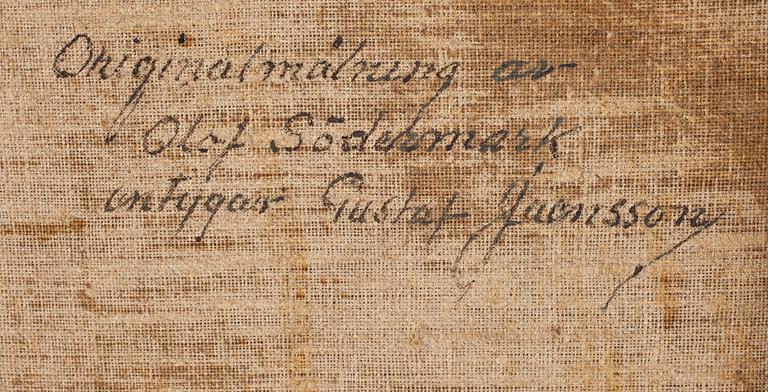 Originalmålning av
Olof Södermark
intygar Gustaf Jaensson